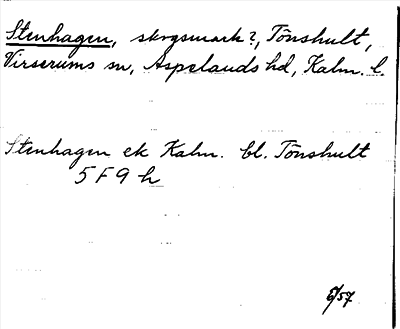 Stenhagen, skogsmark?, Tönshult,
Virserums sn, Aspelands hd, Kalm. l.
Stenhagen ek Kalm. bl. Tönshult
5 F 9 h
6/57